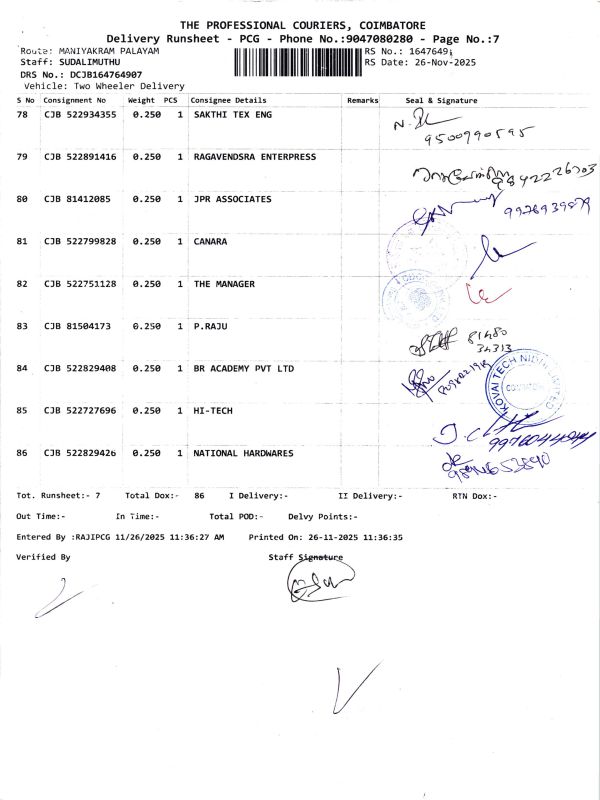 THE PROFESSIONAL COURIERS, COIMBATORE
Delivery Runsheet - PCG - Phone No.:9047080280 - Page No.:7
Route: MANIYAKRAM PALAYAM RS No.: 1647649
Staff: SUDALIMUTHU RS Date: 26-Nov-2025
DRS No.: DCJB164764907
Vehicle: Two Wheeler Delivery
S No Consignment No Weight PCS Consignee Details Remarks Seal & Signature
78 CJB 522934355 0.250 1 SAKTHI TEX ENG
9500990595
79 CJB 522891416 0.250 1 RAGAVENDSRA ENTERPRESS
9842226703
80 CJB 81412085 0.250 1 JPR ASSOCIATES
9976939879
81 CJB 522799828 0.250 1 CANARA
82 CJB 522751128 0.250 1 THE MANAGER
83 CJB 81504173 0.250 1 P.RAJU
81480
34313
84 CJB 522829408 0.250 1 BR ACADEMY PVT LTD
KOVAI TECH
85 CJB 522727696 0.250 1 HI-TECH
86 CJB 522829426 0.250 1 NATIONAL HARDWARES
Tot. Runsheet:- 7 Total Dox:- 86 I Delivery:- II Delivery:- RTN Dox:-
Out Time:- In Time:- Total POD:- Delvy Points:-
Entered By :RAJIPCG 11/26/2025 11:36:27 AM Printed On: 26-11-2025 11:36:35
Verified By Staff Signature